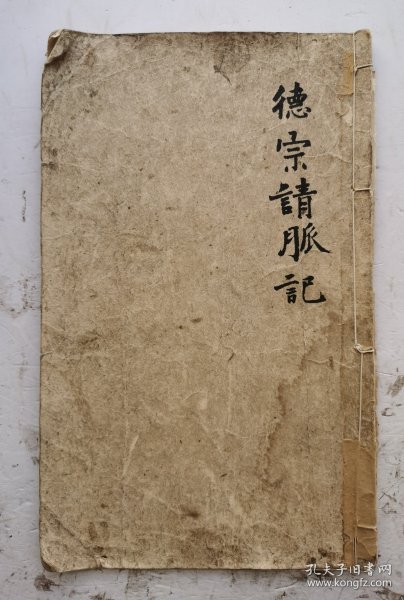 德宗請脈記
孔夫子旧书网
www.kongfz.com